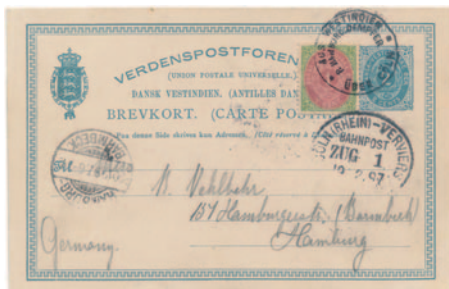 VERDENSPOSTFOREN
(UNION POSTALE UNIVERSELLE.)
DANSK VESTINDIEN. (ANTILLES DAN
BREVKORT. (CARTE POSTA
Paa denne Side skrives kun Adressen. (Côté réservé à
AUS WESTINDIEN
ÜBER
CÖLN (RHEIN)-VERVIERS
BAHNPOST
ZUG 1
HAMBURG
BARMBECK
157 Hamburgerstr. (Barmbeck)
Hamburg
Germany.